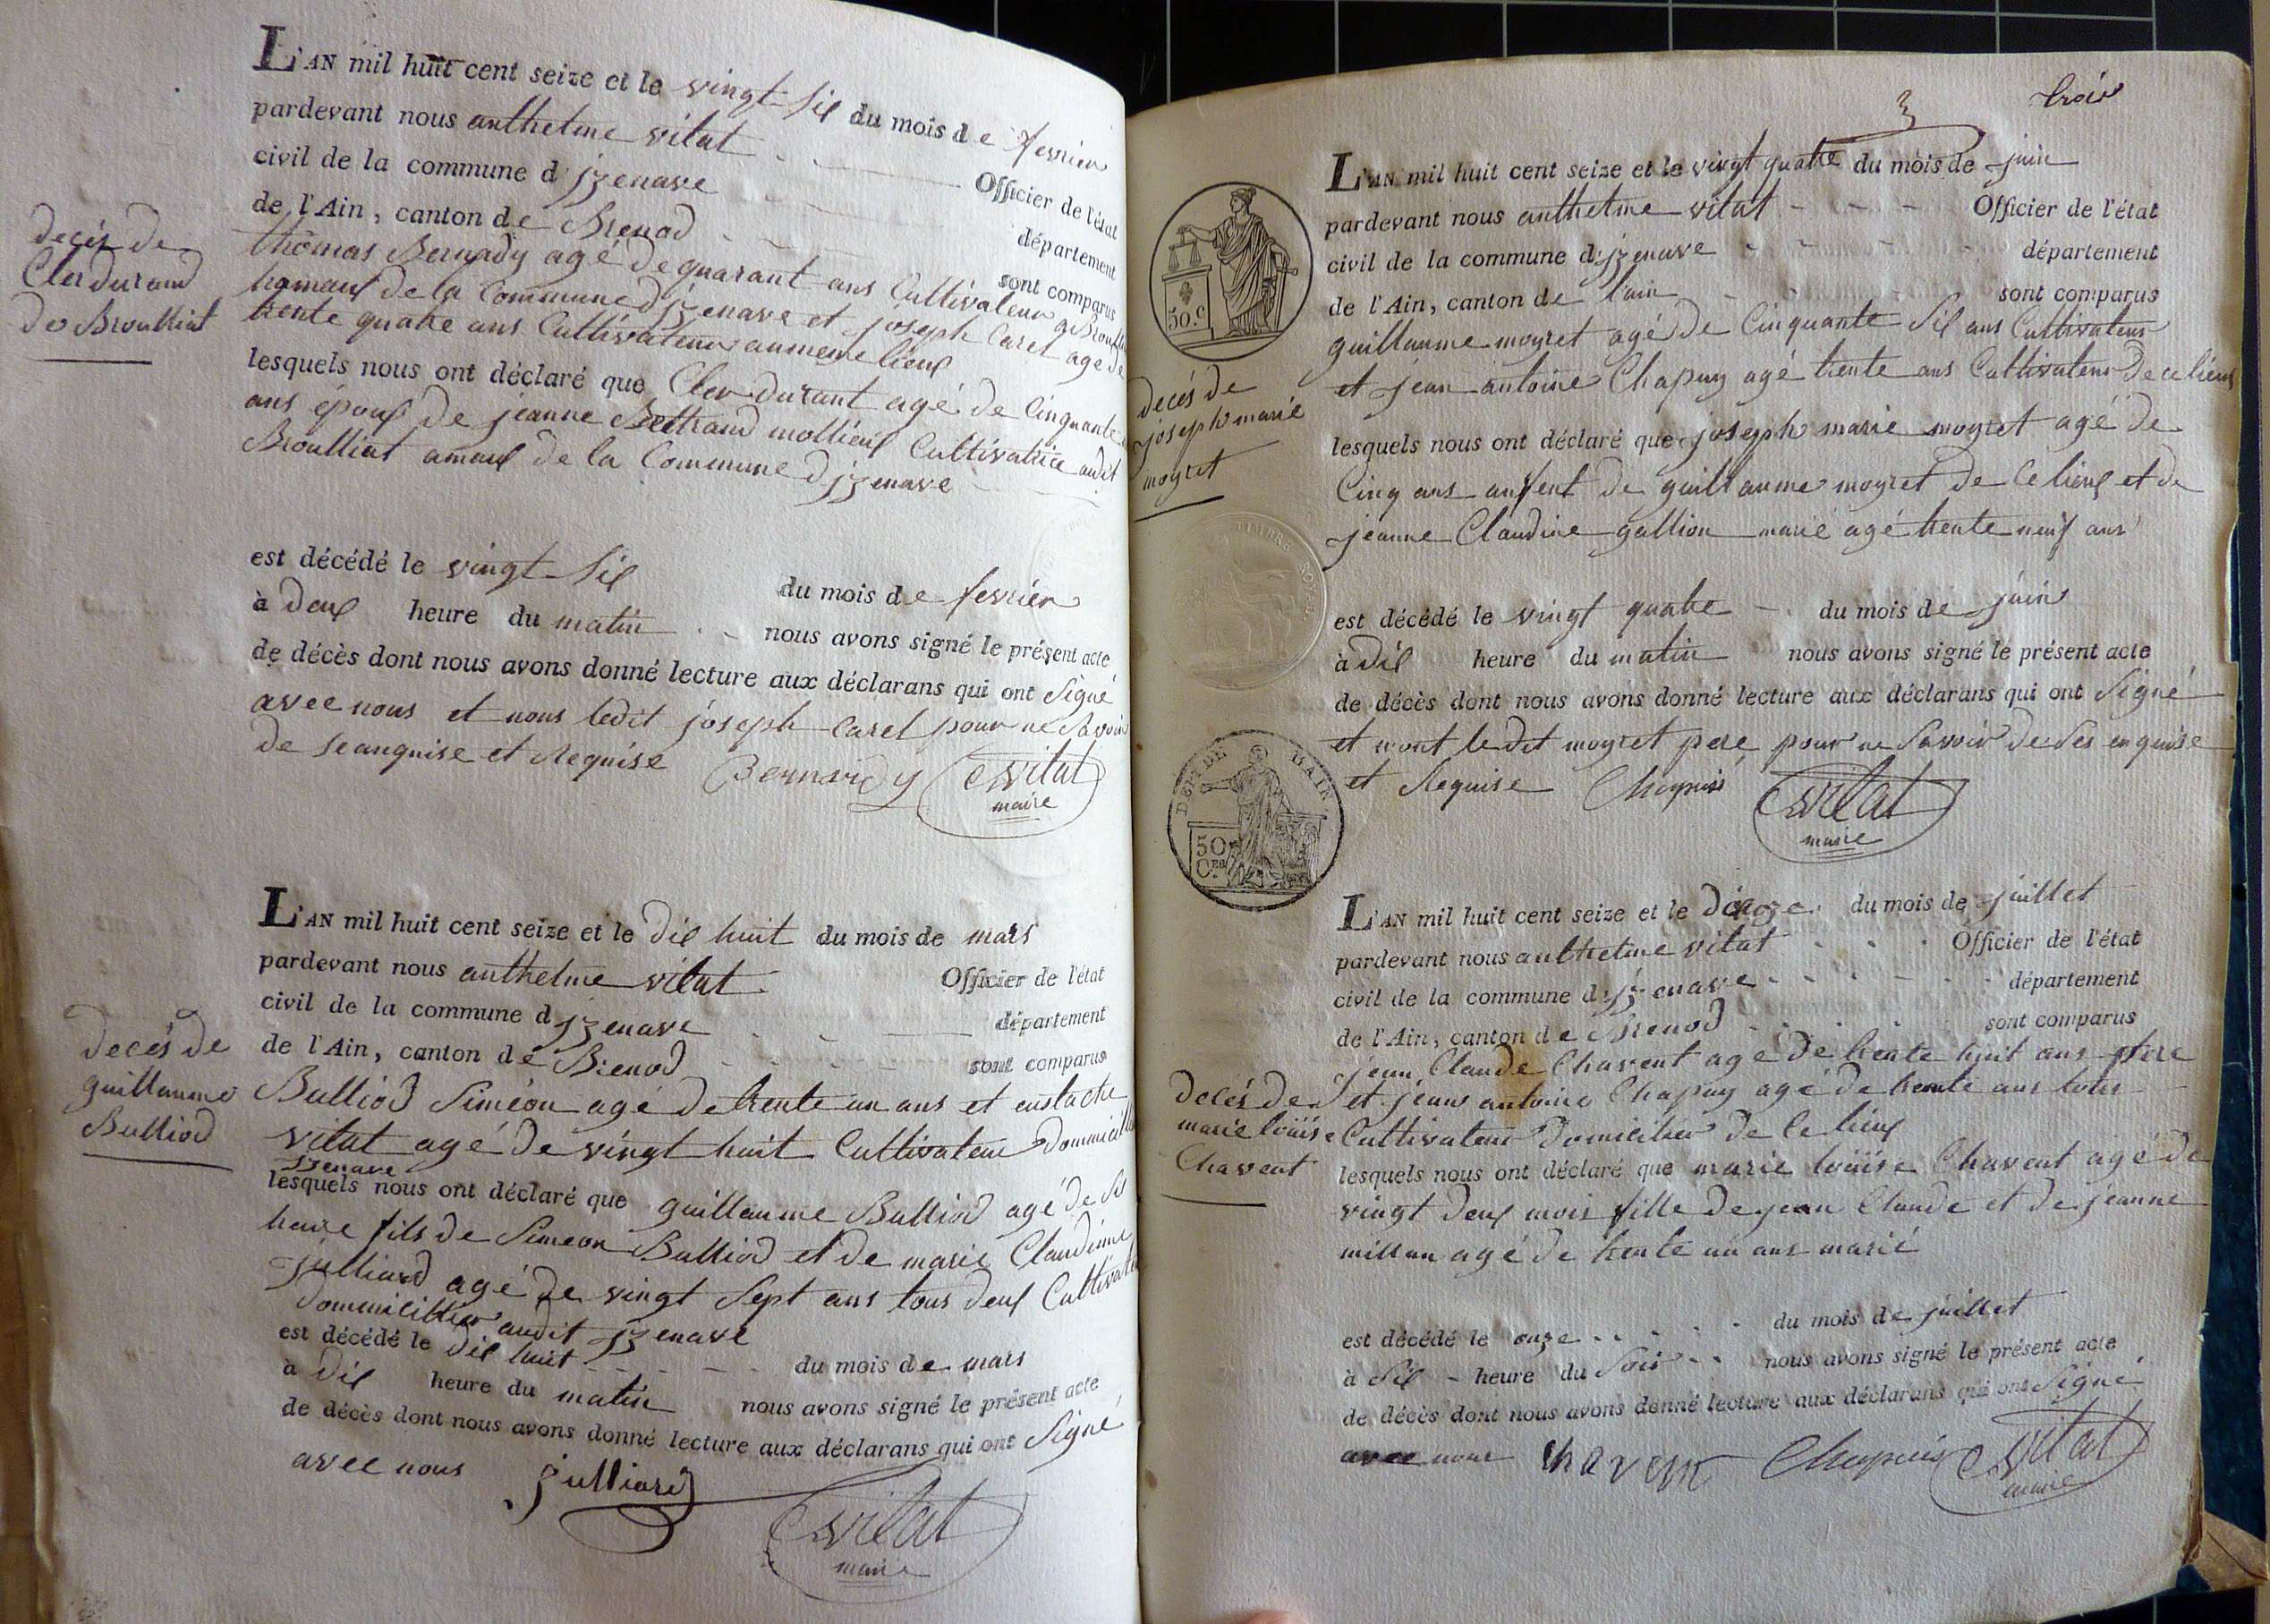 L'AN mil huit cent seize et le vingt Sil du mois de fevrier
pardevant nous anthelme vilat Officier de l'état
civil de la commune d'jzenave département
de l'Ain, canton de Brenod sont comparus
thomas Bernady agé de quarant ans Cultivateur a
hameau de la Commune d'jzenave et joseph Carel agé de
trente quatre ans Cultivateur au meme lieux
lesquels nous ont déclaré que Cler durant agé de Cinquante
ans époux de jeanne Bertrand mollieux Cultivatrice audit
Broulliat amaux de la Commune d'jzenave
decés de
Cler durand
de Broulliat
est décédé le vingt Sil du mois de fevrier
à deux heure du matin nous avons signé le présent acte
de décès dont nous avons donné lecture aux déclarans qui ont Signé
avec nous et nons ledit joseph Carel pour ne Savoir
de Seanquise et Requise Bernardy vilat
maire
L'AN mil huit cent seize et le dix huit du mois de mars
pardevant nous anthelme vilat Officier de l'état
civil de la commune d'jzenave département
de l'Ain, canton de Brenod sont comparus
Bulliod Siméon agé de trente un ans et eustache
vilat agé de vingt huit Cultivateur
jzenave
lesquels nous ont déclaré que guillaume Bulliod agé de Six
heure fils de Simeon Bulliod et de marie Claudinne
julliard agé de vingt Sept ans tous deux
dommicillier audit jzenave
decés de
guillaume
Bulliod
est décédé le dix huit du mois de mars
à dix heure du matin nous avons signé le présent acte
de décès dont nous avons donné lecture aux déclarans qui ont Signé
avec nous julliard
vilat
maire
3 trois
L'AN mil huit cent seize et le vingt quatre du mois de juin
pardevant nous anthelme vilat Officier de l'état
civil de la commune d'jzenave département
de l'Ain, canton de l'ain sont comparus
guillaume moyret agé de Cinquante Six ans Cultivateur
et jean antoine Chapuy agé trente ans Cultivateur de ce lieux
lesquels nous ont déclaré que joseph marie moyret agé de
Cinq ans anfent de guillaume moyret de Ce lieux et de
jeanne Claudine gallion marié agé trente neuf ans
50.c
decés de
joseph marié
moyret
TIMBRE ROYAL
est décédé le vingt quatre du mois de juin
à dix heure du matin nous avons signé le présent acte
de décès dont nous avons donné lecture aux déclarans qui ont Signé
et n'ont le dit moyret pere pour ne Savoir de Ses enquise
et Requise Chapuis vilat
maire
DEPT DE L'AIN
50
L'AN mil huit cent seize et le douze du mois de juillet
pardevant nous anthelme vilat Officier de l'état
civil de la commune d'jzenave département
de l'Ain, canton de Brenod sont comparus
jean Claude Chavent agé de trente huit ans pere
et jean antoine Chapuy agé de trente ans tous
Cultivateur domicilier de Ce lieux
lesquels nous ont déclaré que marie loüise Chavent agé de
vingt deux mois fille de jean Claude et de jeanne
millan agé de trente un ans marié
decés de
marie loüise
Chavent
est décédé le onze du mois de juillet
à Six heure du Soir nous avons signé le présent acte
de décès dont nous avons donné lecture aux déclarans qui ont Signé
avec nous Chavent Chapuis vilat
maire